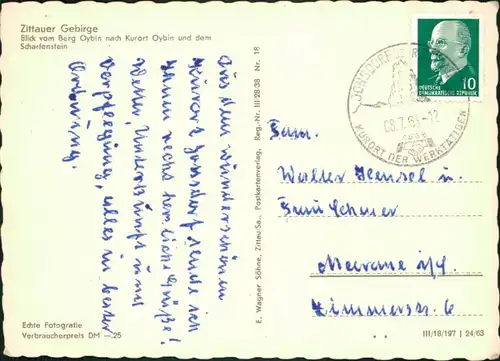 Zittauer Gebirge
Blick vom Berg Oybin nach Kurort Oybin und dem
Scharfenstein
Aus dem wunderschönen
Kurort Jonsdorf sende ich
Ihnen recht herzliche Grüße!
Wetter, Unterkunft und
Verpflegung, alles in bester
Ordnung.
Echte Fotografie
Verbraucherpreis DM —.25
E. Wagner Söhne, Zittau/Sa., Postkartenverlag, Reg.-Nr. III/28/38 Nr. 18
JONSDORF
08.7.65-12
KURORT DER WERKTÄTIGEN
10
DEUTSCHE
DEMOKRATISCHE REPUBLIK
Fam.
Walter Hensel u.
Frau
Meerane i/S.
Zimmerstr. 6
III/18/197 | 24/63